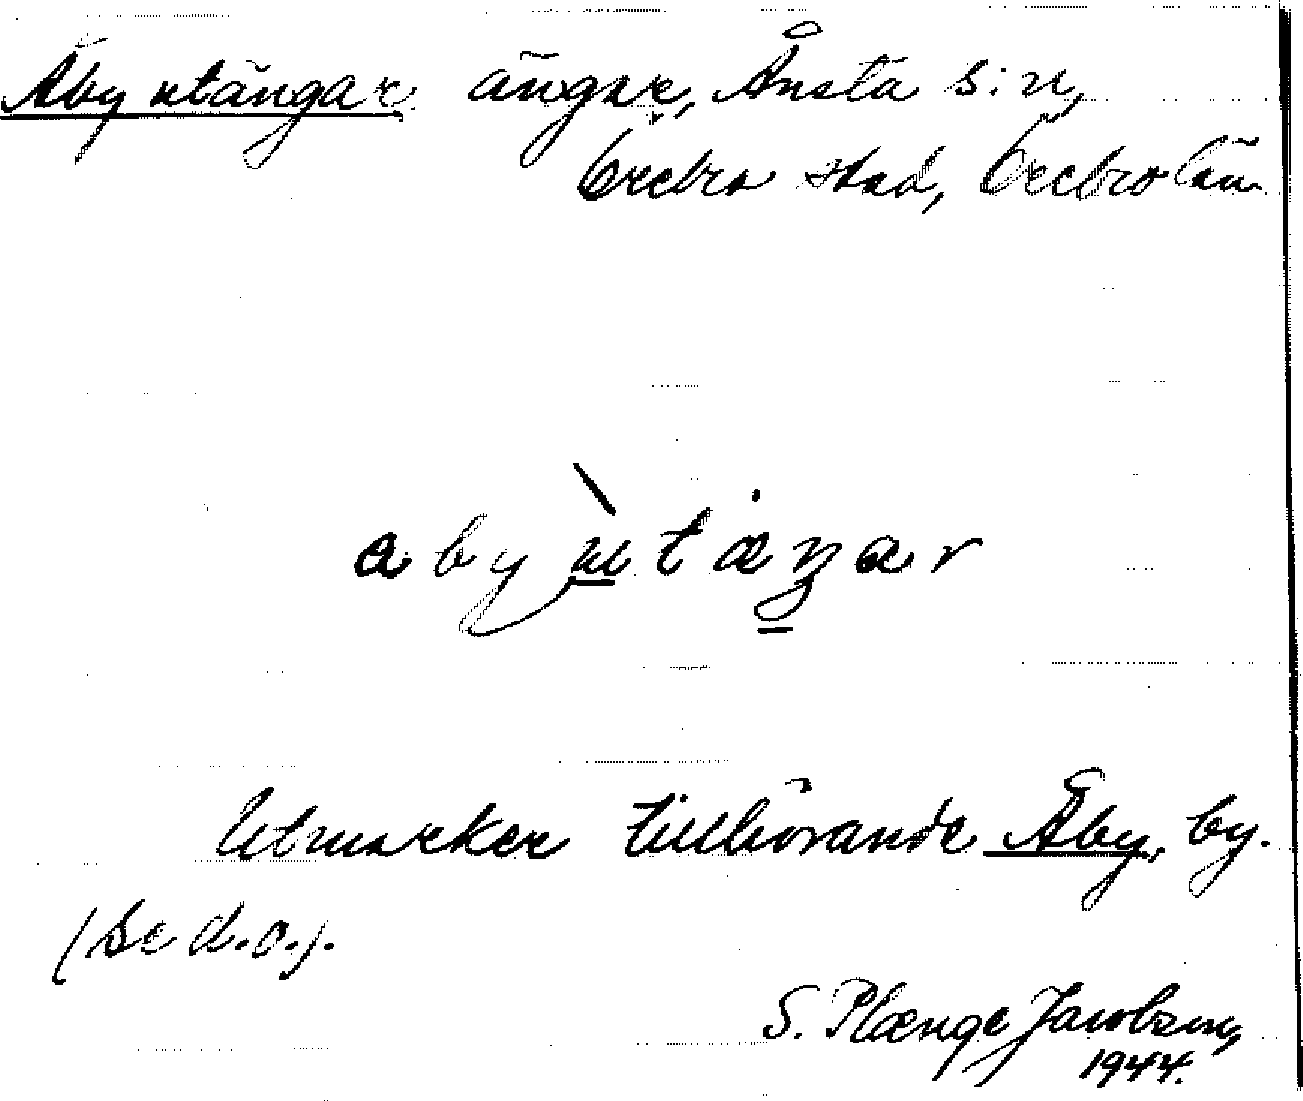 Åby utängar ängar, Ånsta s:n,
Örebro stad, Örebro län
aby ùtæŋar
Utmarker tillhörande Åby, by.
(Se d.o.).
S. Plænge Jacobson,
1944.